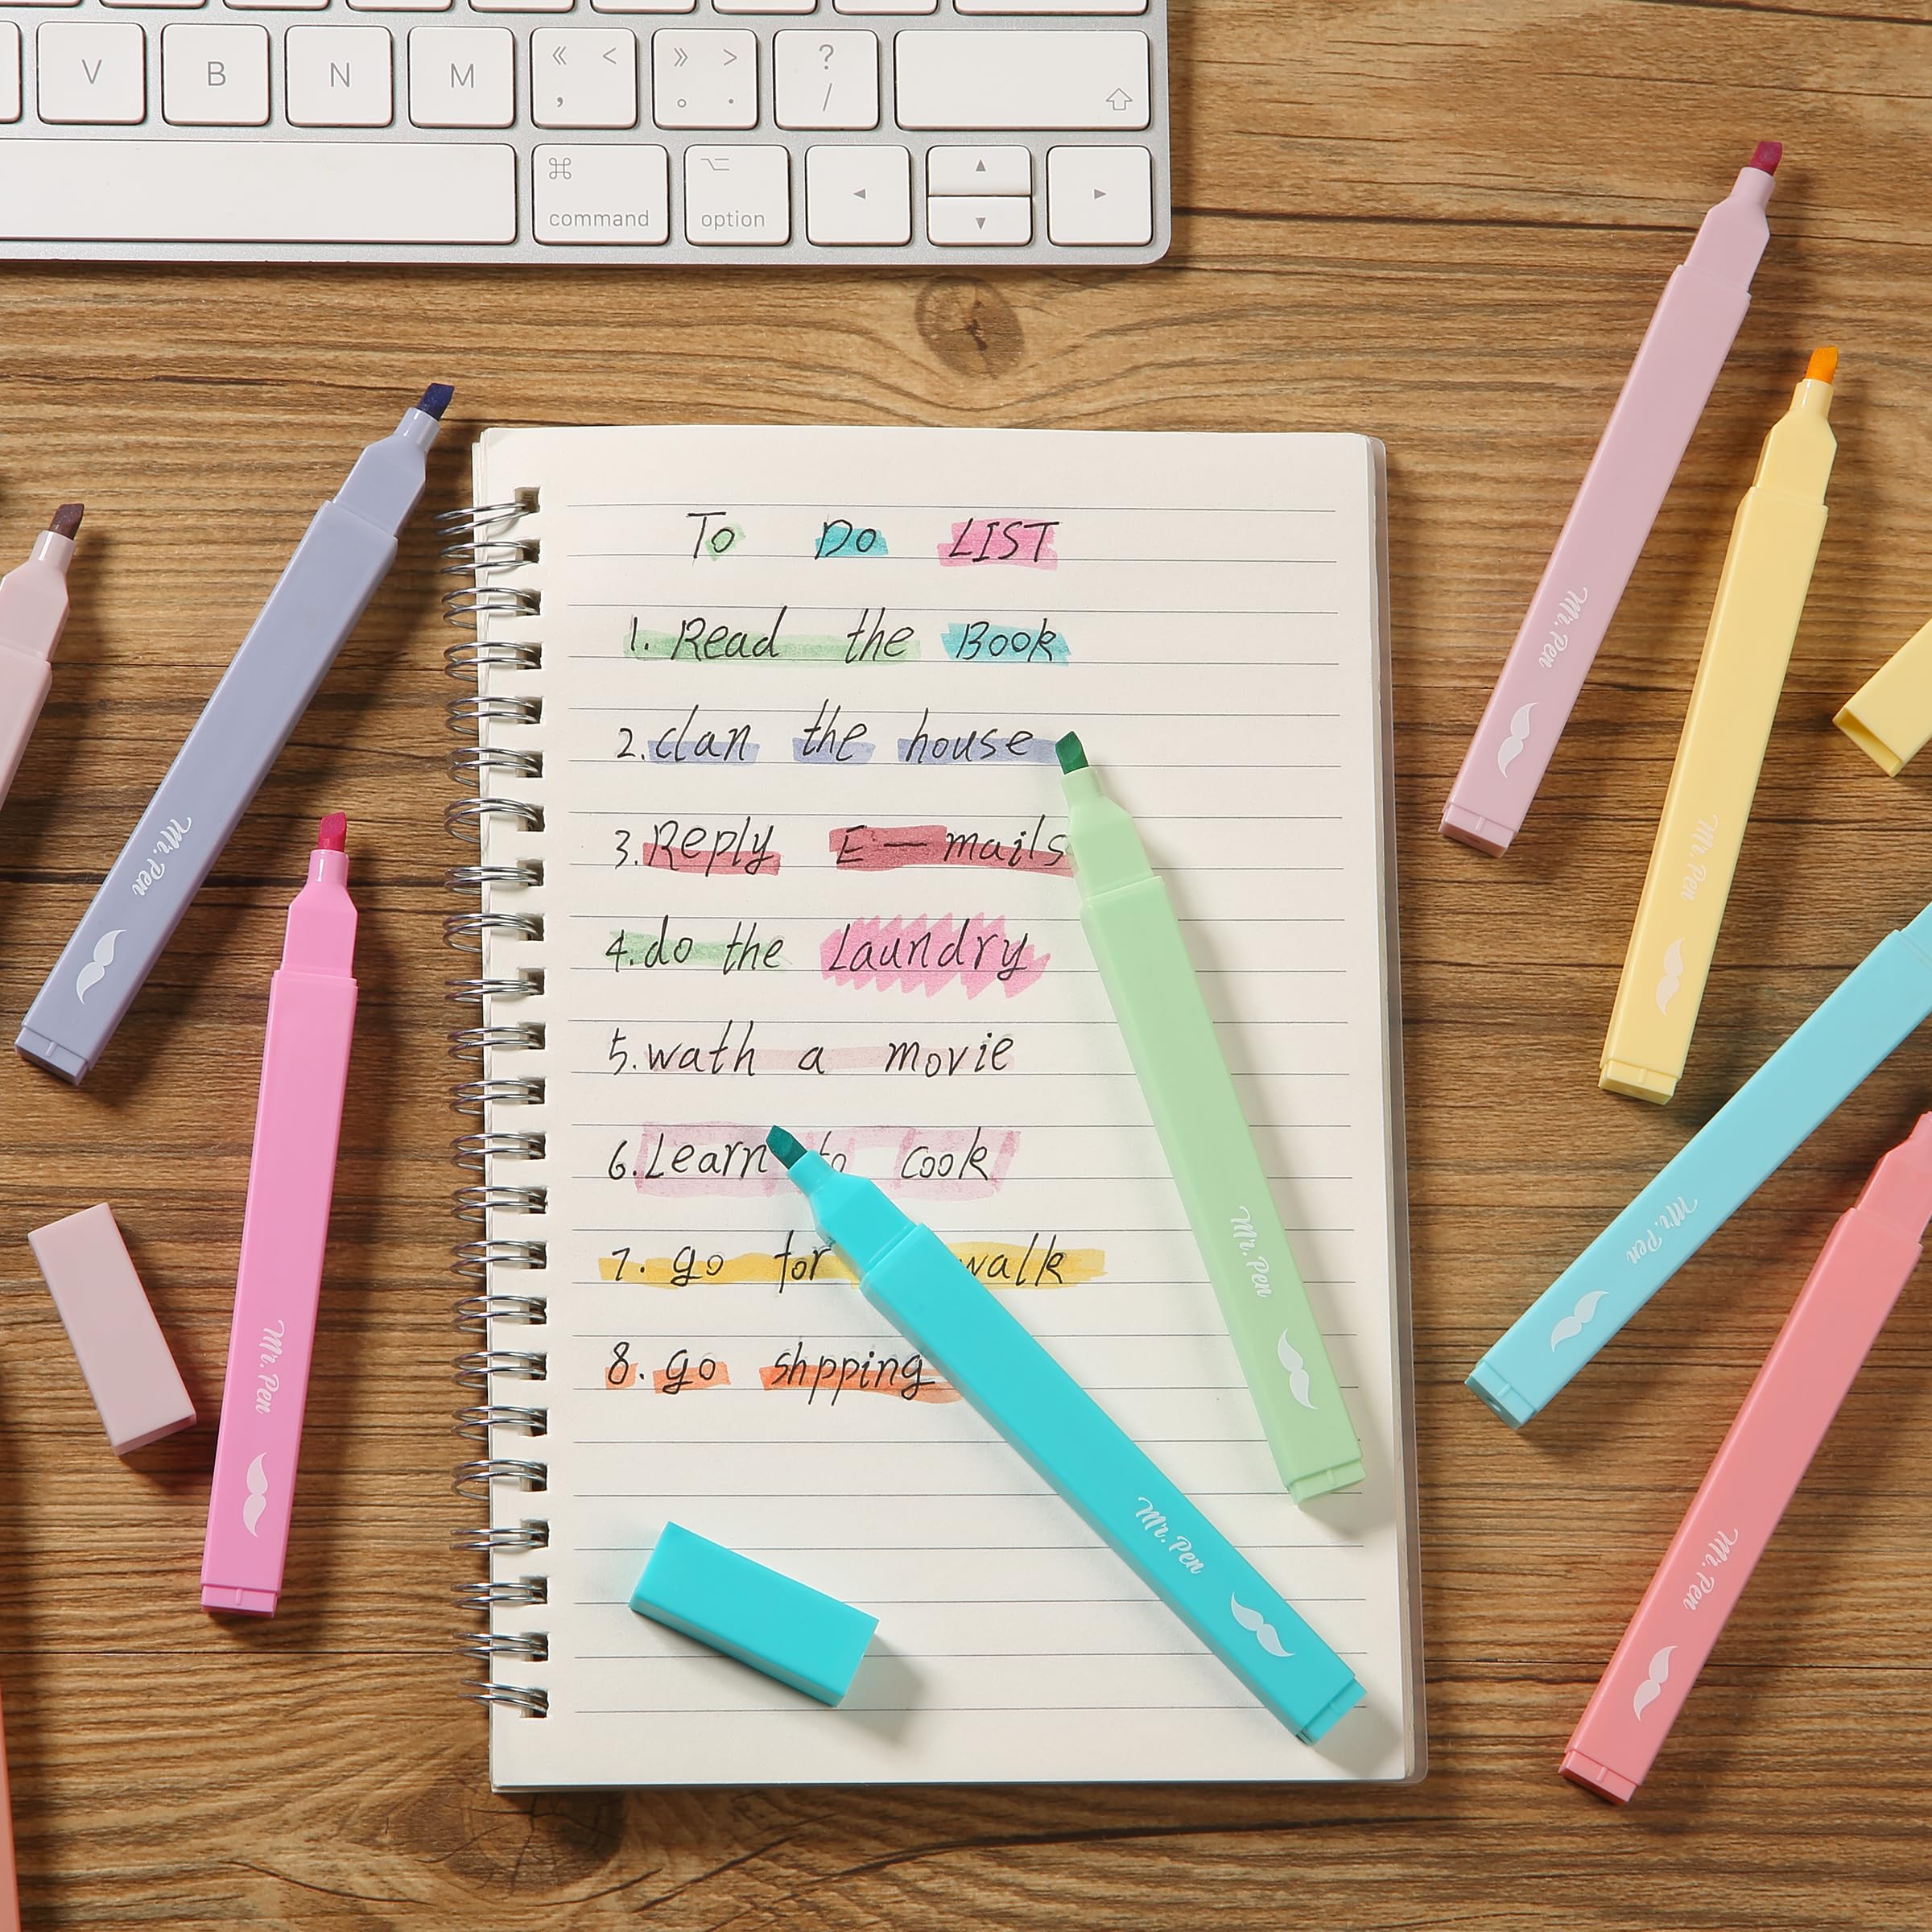 V B N M « < , » > 。 . ? /
⌘ command ⌥ option ◄ ▲ ▼ ►
To Do LIST
1. Read the Book
2. clan the house
3. Reply E-mails
4. do the Laundry
5. wath a movie
6. Learn to cook
7. go for walk
8. go shpping
Mr. Pen
Mr. Pen
Mr. Pen
Mr. Pen
Mr. Pen
Mr. Pen
Mr. Pen
Mr. Pen